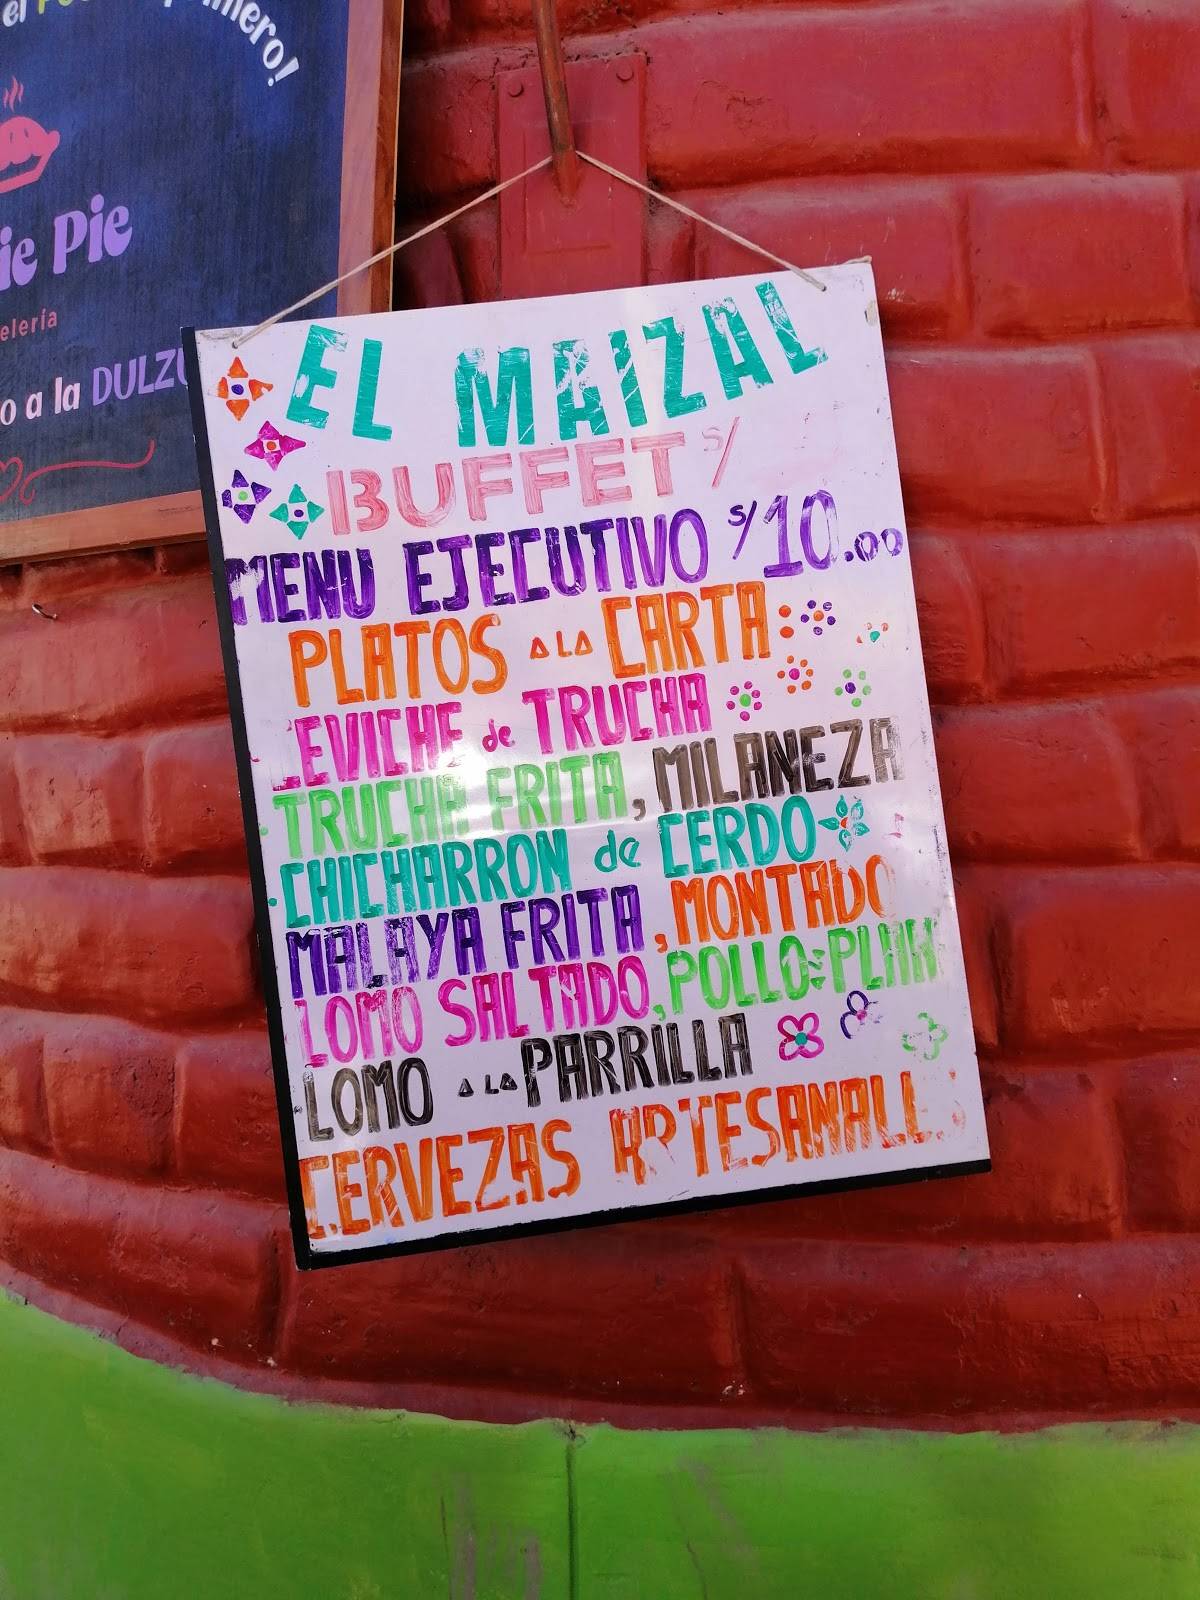 el primero!
ie Pie
elería
o a la DULZU
EL MAIZAL
BUFFET S/
MENU EJECUTIVO S/10.00
PLATOS A LA CARTA
CEVICHE de TRUCHA
TRUCHA FRITA, MILANEZA
CHICHARRON de CERDO
MALAYA FRITA, MONTADO
LOMO SALTADO, POLLO PLAN
LOMO A LA PARRILLA
CERVEZAS ARTESANALES